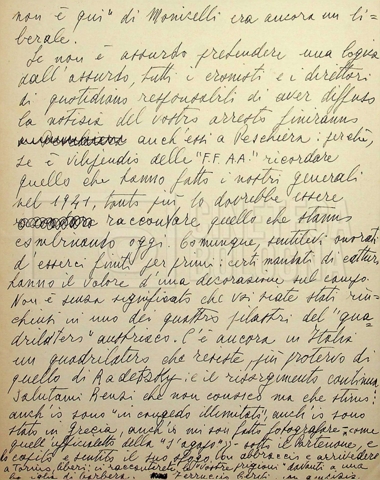 non è qui" di Monicelli era ancora un li-
berale.
Se non è assurdo pretendere una logica
dall'assurdo, tutti i cronisti e i direttori
di quotidiani responsabili di aver diffuso
la notizia del vostro arresto finiranno
anch'essi a Peschiera: perché,
se è vilipendio delle "F.F.A.A." ricordare
quello che hanno fatto i nostri generali
nel 1941, tanto più, lo dovrebbe essere
raccontare quello che stanno
combinando oggi. Comunque, sentitevi onorati
d'esserci finiti per primi: certi mandati di cattura
hanno il valore d'una decorazione sul campo.
Non è senza significato che voi siate stati rin-
chiusi in uno dei quattro pilastri dell'"qua-
drilatero" austriaco. C'è ancora in Italia
un quadrilatero che resiste, più protervo di
quello di Radetzsky, e il risorgimento continua.
Salutami Renzi che non conosco ma che stimo:
anch'io sono "in congedo illimitato", anch'io sono
stato in Grecia, anch'io mi son fatto fotografare, come
quell'ufficialetto della "s'agapò", sotto il Partenone, e
capito e sentito il suo Un abbraccio e arrivederci
a Torino, liberi: ci racconterete le "vostre prigioni" davanti a una
di barbera.